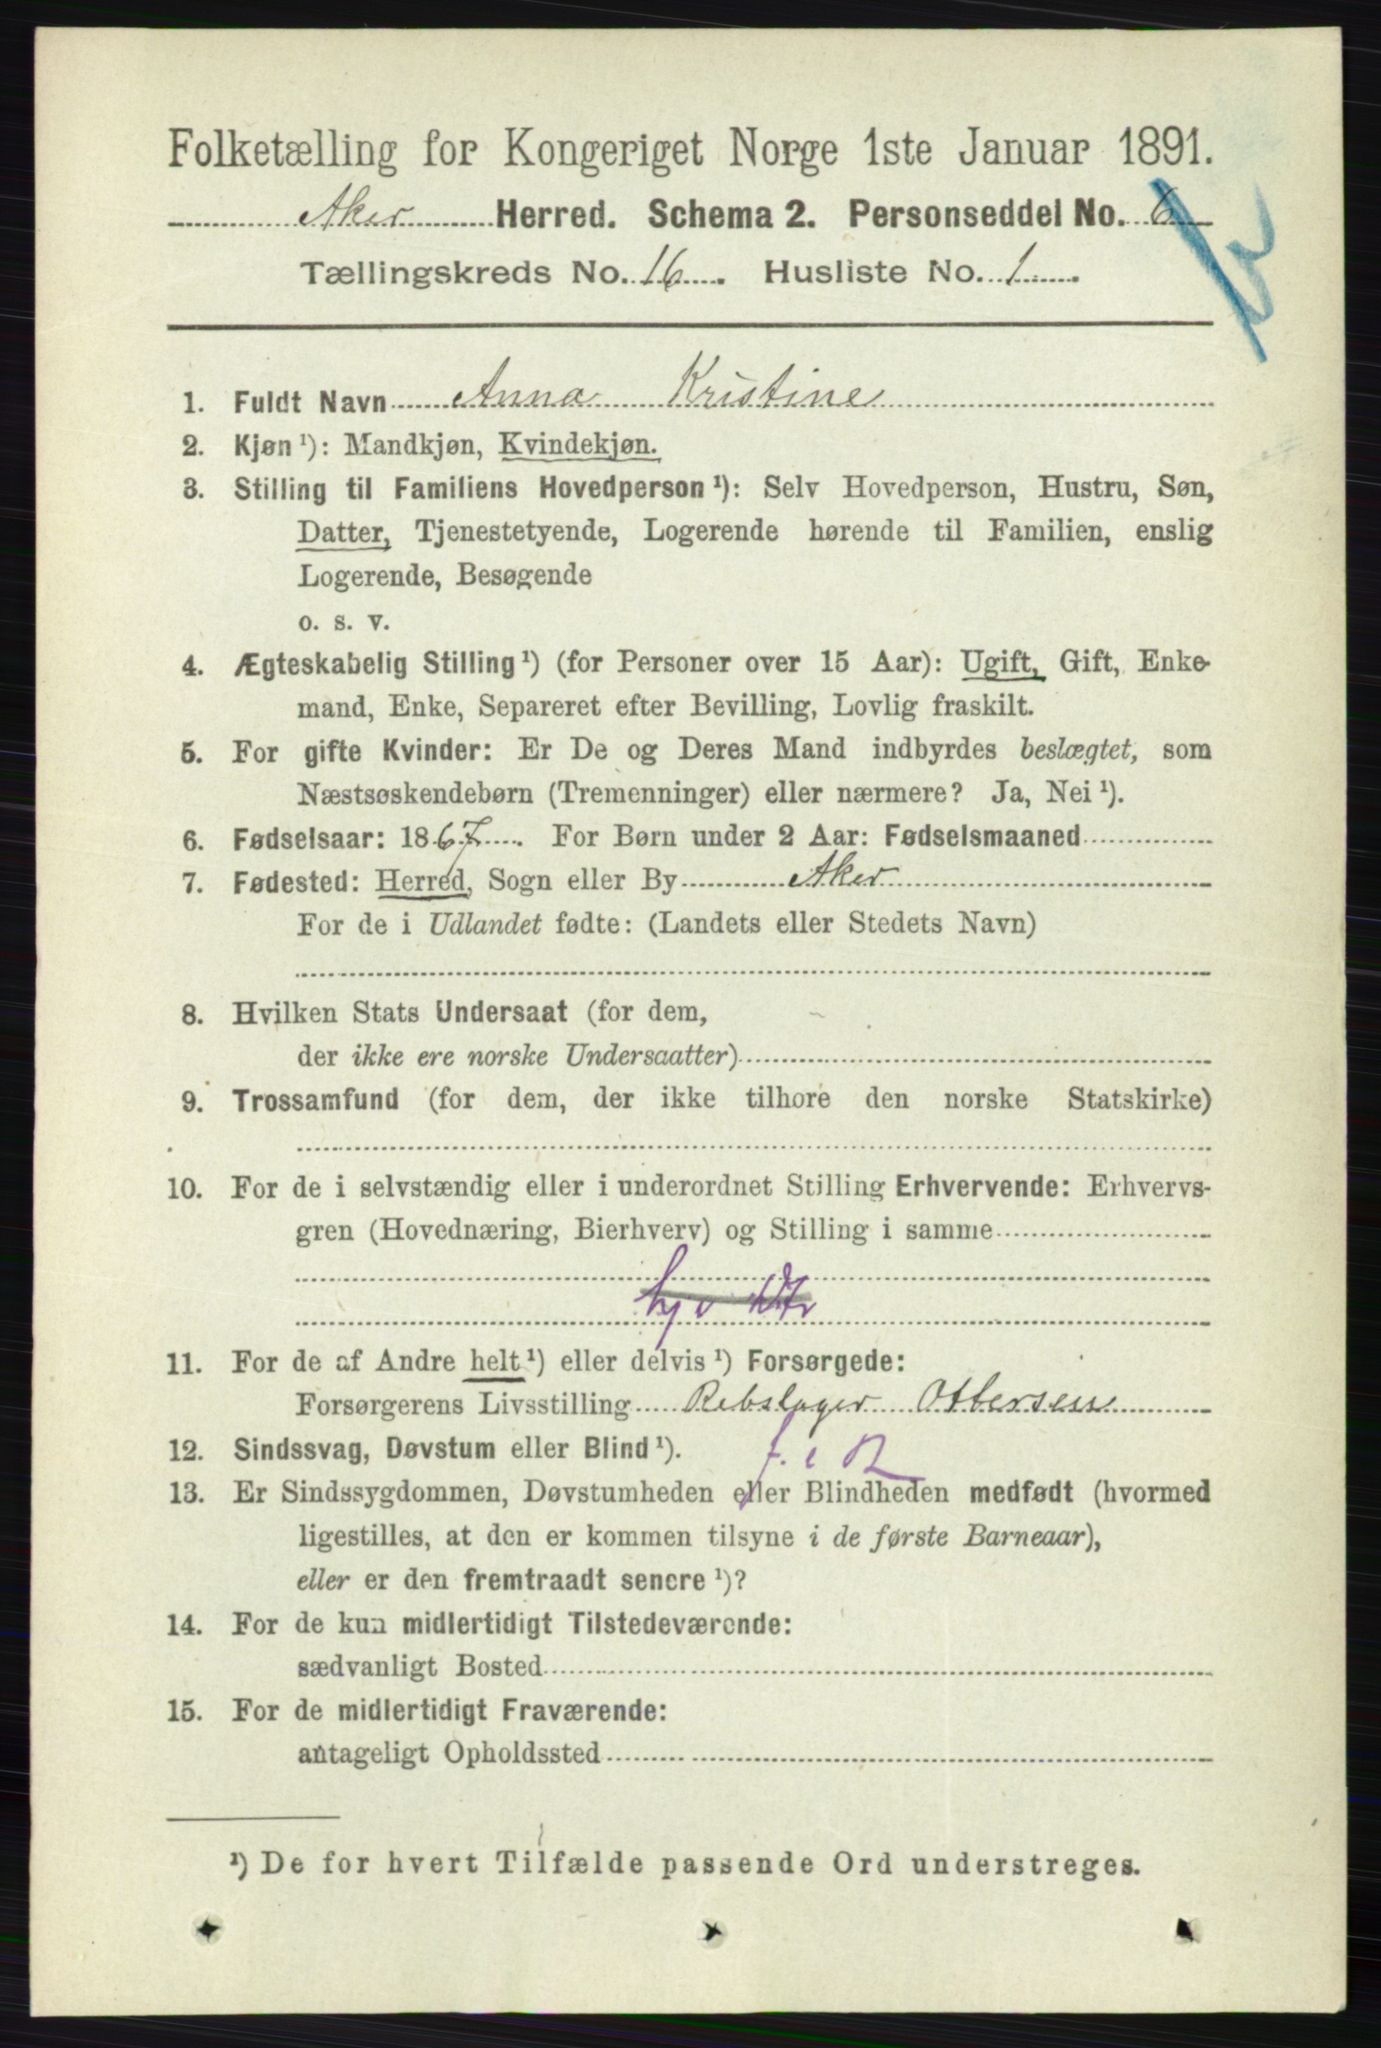 Folketælling for Kongeriget Norge 1ste Januar 1891.
Aker Herred. Schema 2. Personseddel No. 6
Tællingskreds No. 16. Husliste No. 1.
1. Fuldt Navn Anna Kristine
2. Kjøn ¹): Mandkjøn, Kvindekjøn.
3. Stilling til Familiens Hovedperson ¹): Selv Hovedperson, Hustru, Søn,
Datter, Tjenestetyende, Logerende hørende til Familien, enslig
Logerende, Besøgende
o. s. v.
4. Ægteskabelig Stilling ¹) (for Personer over 15 Aar): Ugift, Gift, Enke-
mand, Enke, Separeret efter Bevilling, Lovlig fraskilt.
5. For gifte Kvinder: Er De og Deres Mand indbyrdes beslægtet, som
Næstsøskendebørn (Tremenninger) eller nærmere? Ja, Nei ¹).
6. Fødselsaar: 1867. For Børn under 2 Aar: Fødselsmaaned
7. Fødested: Herred, Sogn eller By Aker
For de i Udlandet fødte: (Landets eller Stedets Navn)
8. Hvilken Stats Undersaat (for dem,
der ikke ere norske Undersaatter)
9. Trossamfund (for dem, der ikke tilhøre den norske Statskirke)
10. For de i selvstændig eller i underordnet Stilling Erhvervende: Erhvervs-
gren (Hovednæring, Bierhverv) og Stilling i samme
11. For de af Andre helt ¹) eller delvis ¹) Forsørgede:
Forsørgerens Livsstilling Rebslager Ottersen
12. Sindssvag, Døvstum eller Blind ¹).
13. Er Sindssygdommen, Døvstumheden eller Blindheden medfødt (hvormed
ligestilles, at den er kommen tilsyne i de første Barneaar),
eller er den fremtraadt senere ¹)?
14. For de kun midlertidigt Tilstedeværende:
sædvanligt Bosted
15. For de midlertidigt Fraværende:
antageligt Opholdssted
¹) De for hvert Tilfælde passende Ord understreges.